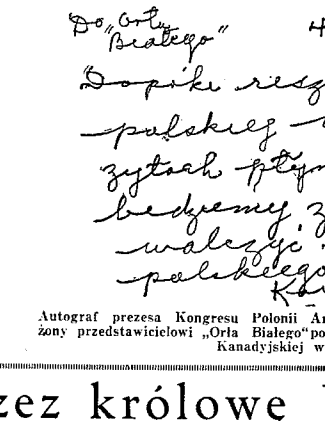 Do „Orła
Białego"
"Dopóki resz
polskiej
żyłach płyn
będziemy
walczyć
polskiego
Autograf prezesa Kongresu Polonii Am
żony przedstawicielowi „Orła Białego" po
Kanadyjskiej w
zez królowe